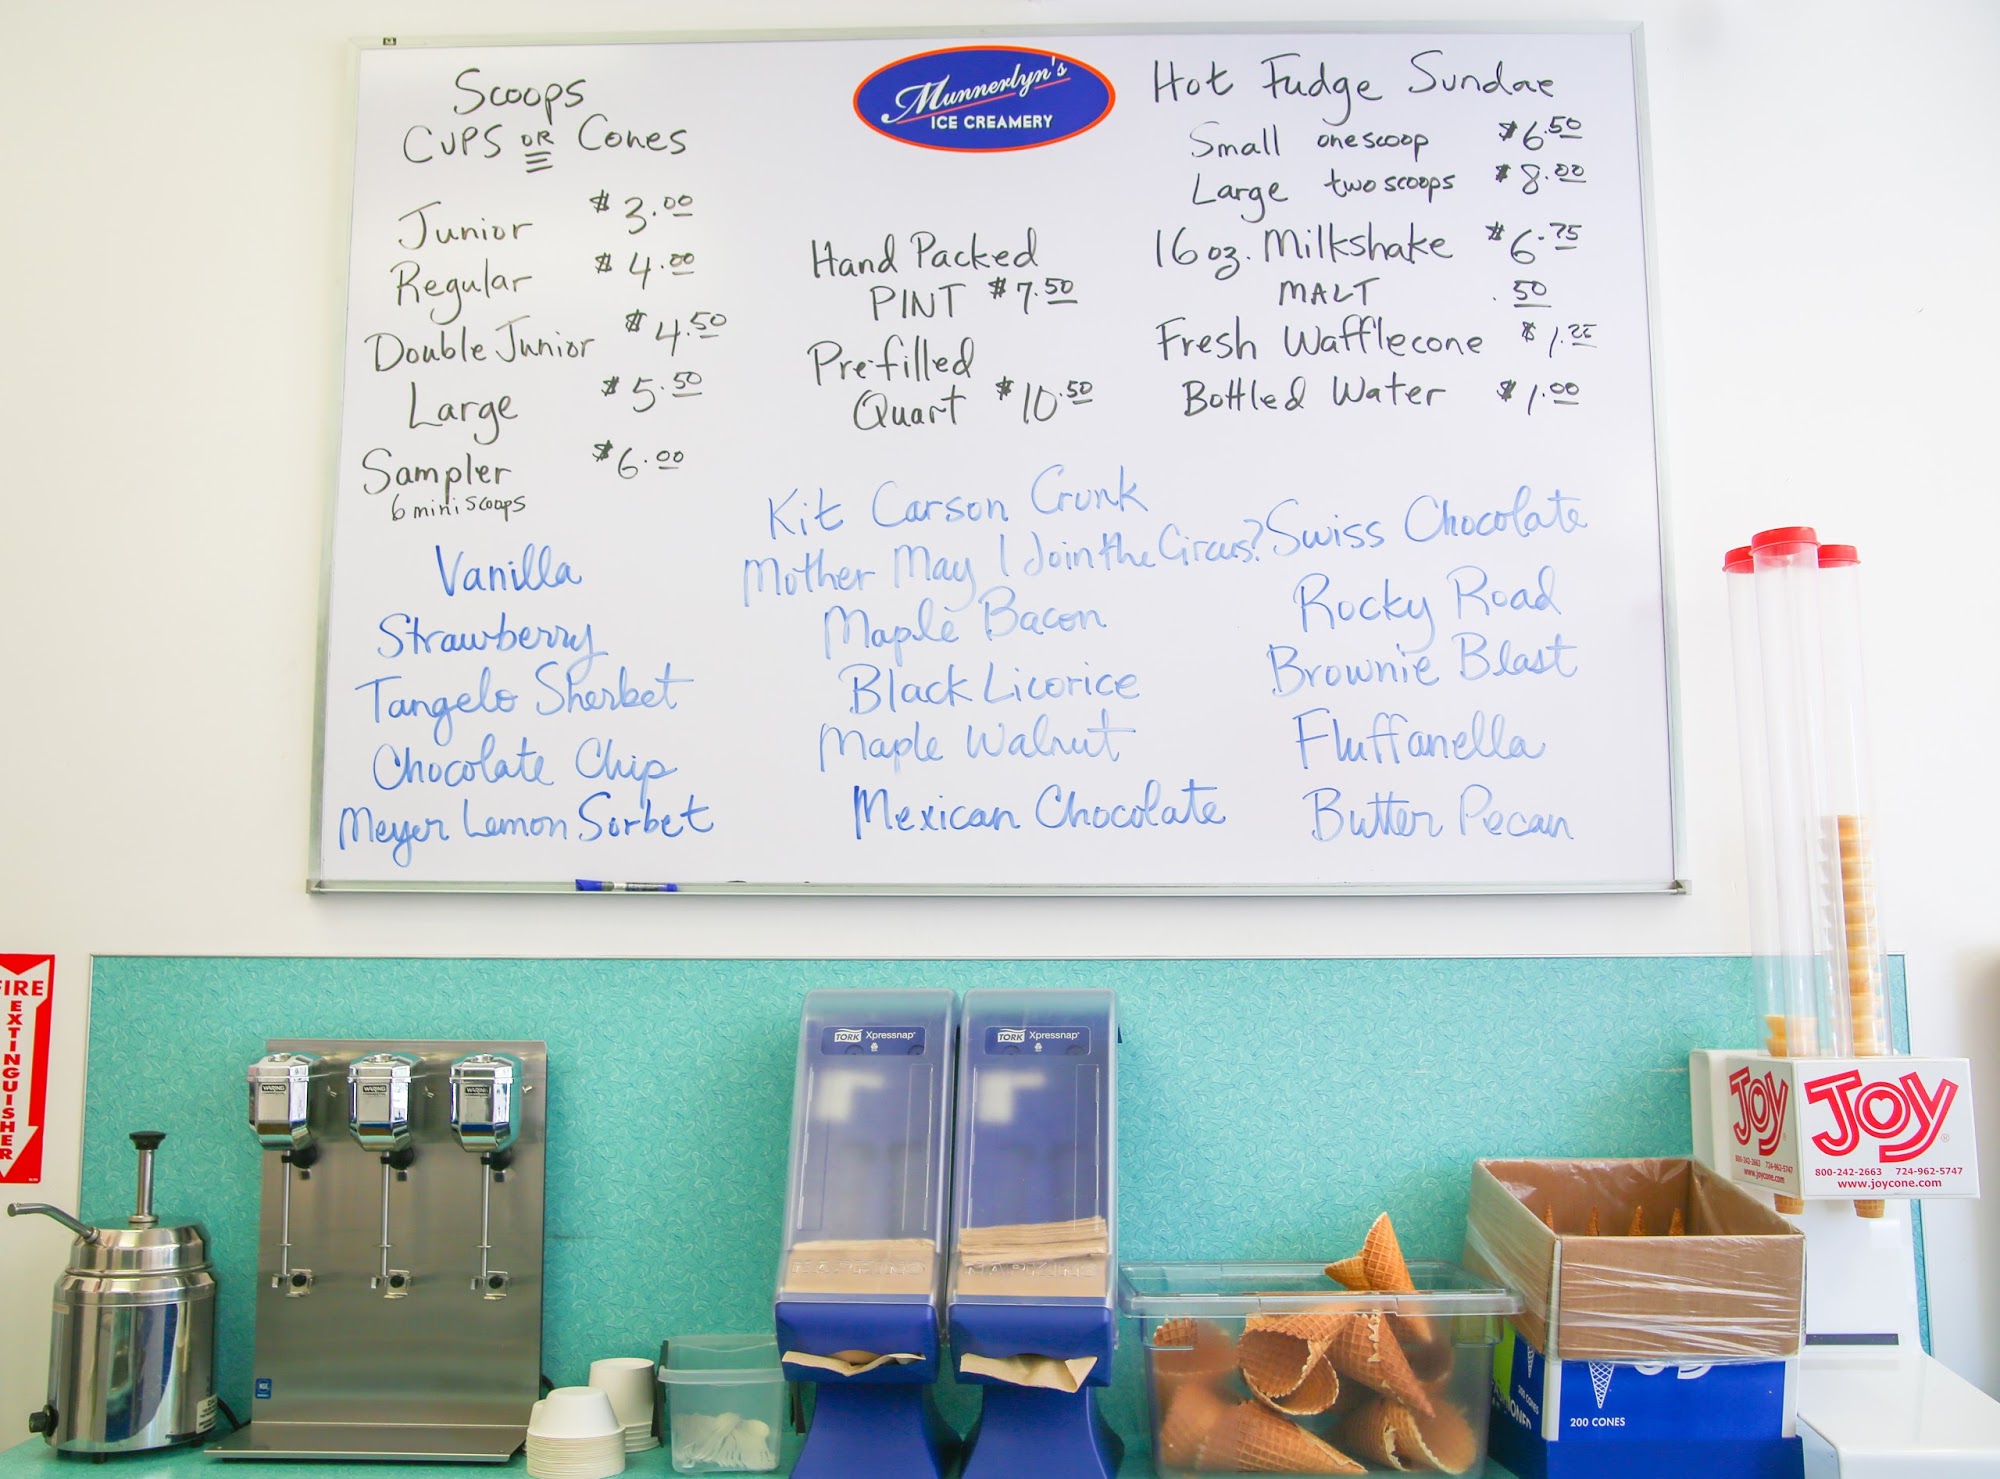 Munnerlyn's
ICE CREAMERY
Scoops
CUPS OR Cones
Junior $3.00
Regular $4.00
Double Junior $4.50
Large $5.50
Sampler $6.00
6 mini scoops
Hand Packed
PINT $7.50
Pre-filled
Quart $10.50
Hot Fudge Sundae
Small one scoop $6.50
Large two scoops $8.00
16 oz. Milkshake $6.75
MALT .50
Fresh Wafflecone $1.25
Bottled Water $1.00
Vanilla
Strawberry
Tangelo Sherbet
Chocolate Chip
Meyer Lemon Sorbet
Kit Carson Crunk
Mother May I Join the Circus?
Maple Bacon
Black Licorice
Maple Walnut
Mexican Chocolate
Swiss Chocolate
Rocky Road
Brownie Blast
Fluffanella
Butter Pecan
FIRE
EXTINGUISHER
WARING
WARING
WARING
TORK Xpressnap
TORK Xpressnap
NAPKINS
NAPKINS
JOY
800-242-2663 724-962-5747
www.joycone.com
JOY
800-242-2663 724-962-5747
www.joycone.com
200 CONES